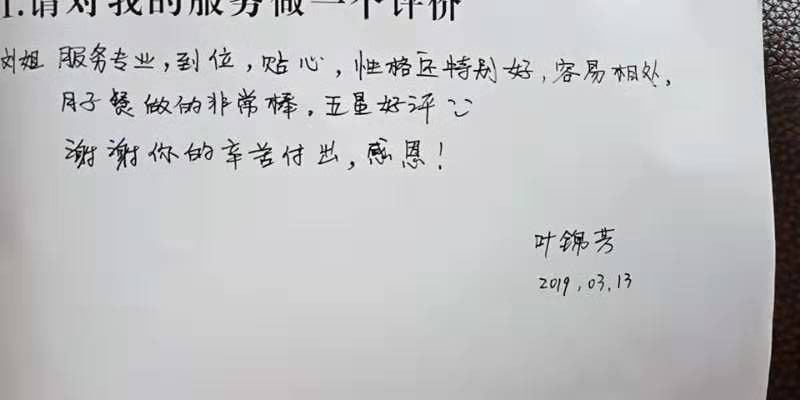 1.请对我的服务做一个评价
刘姐 服务专业,到位,贴心,性格还特别好,容易相处,
月子餐做的非常棒,五星好评
谢谢你的辛苦付出,感恩!
叶锦芳
2019.03.13